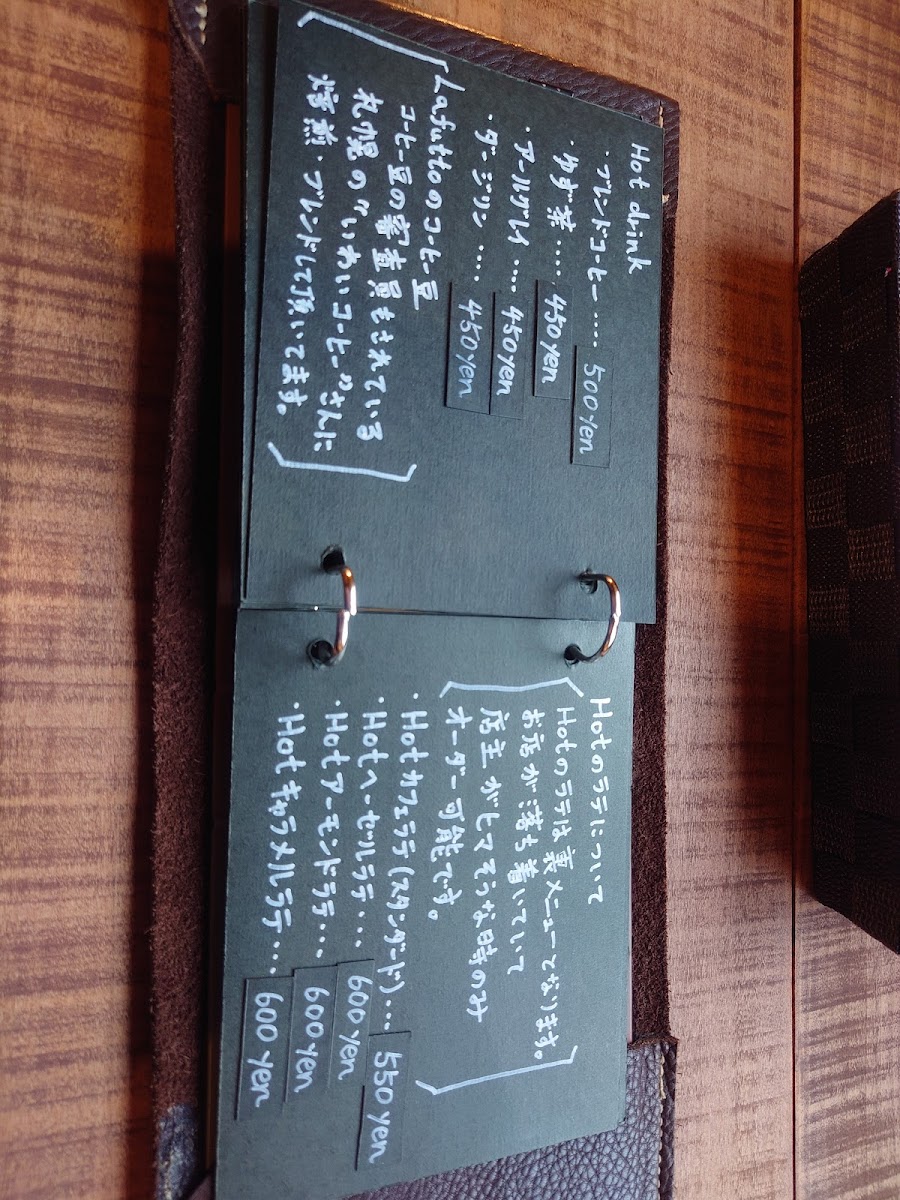 Hot drink
・ブレンドコーヒー…… 500yen
・ゆず茶…… 450yen
・アールグレイ… 450yen
・ダージリン…… 450yen
Lafuttoのコーヒー豆
コーヒー豆の審査員もされている
札幌の"いわいコーヒー"さんに
焙煎・ブレンドして頂いてます。
Hotのラテについて
Hotのラテは裏メニューでなります。
お店が落ち着いていて
店主がヒマそうな時のみ
オーダー可能です。
・Hotカフェラテ(スタンダード)… 550yen
・Hotヘーゼルラテ… 600yen
・Hotアーモンドラテ… 600yen
・Hotキャラメルラテ… 600yen